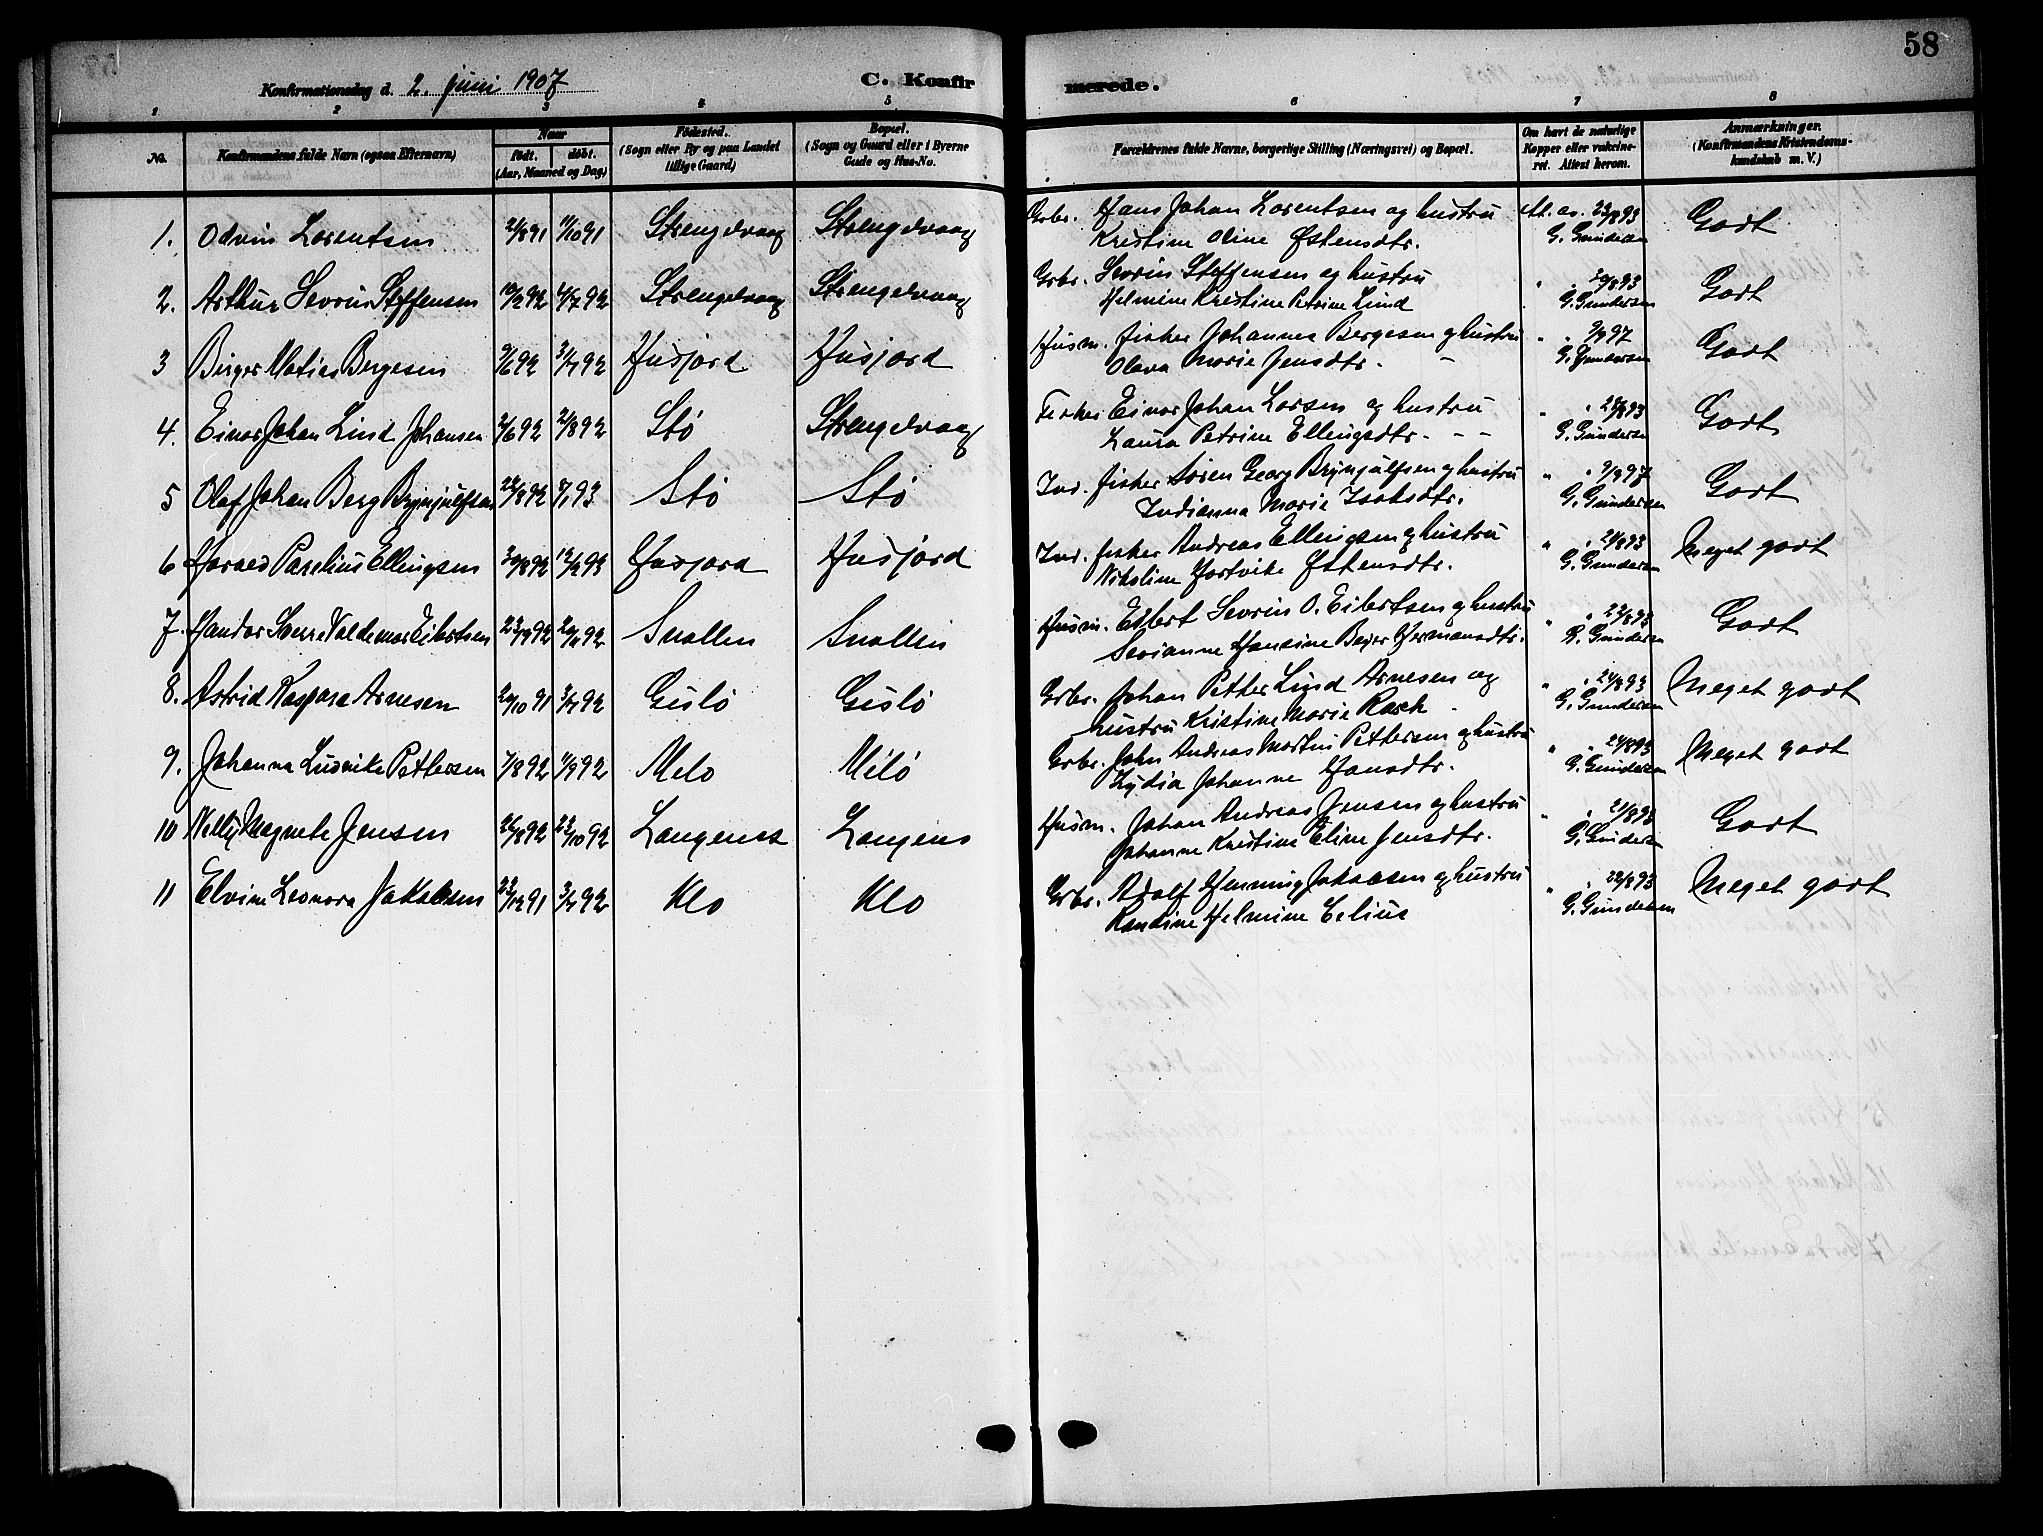 58
Konfirmationsdag d. 2. juni 1907
C. Konfirmerede.
1 2 3 4 5 6 7 8
No.
Konfirmandens fulde Navn (ogsaa Efternavn)
Naar
født. døbt.
(Aar, Maaned og Dag)
Fødested.
(Sogn eller By og paa Landet
tillige Gaard)
Bopæl.
(Sogn og Gaard eller i Byerne
Gade og Hus-No.
Forældrenes fulde Navne, borgerlige Stilling (Næringsvei) og Bopæl.
Om havt de naturlige
Kopper eller vakcine-
ret. Attest herom.
Anmærkninger.
(Konfirmandens Kristendoms-
kundskab m. V.)
1. Odvin Lorentsen 2/8 91 11/10 91 Strengelvaag Strengelvaag Grbr. Hans Johan Lorentsen og hustru At. av. 23/8 93 Godt
Kristine Oline Østensdtr. G. Gundersen
2. Arthur Sevrin Steffensen 10/2 92 4/7 92 Strengelvaag Strengelvaag Grbr. Sevrin Steffensen og hustru " " 30/8 93 Godt
Helmine Kristine Petrine Lind G. Gundersen
3 Birger Matias Bergesen 9/6 92 31/7 92 Husjord Husjord Husm. fisker Johannes Bergesen og hustru " " 9/9 97 Godt
Olava Marie Jensdtr. G. Gundersen
4. Einar Johan Lind Johansen 2/6 92 21/8 92 Stø Strengelvaag Fisker Einar Johan Larsen og hustru " " 28/8 93 Godt
Laura Petrine Ellingsdtr. G. Gundersen
5 Olaf Johan Berg Brynjulfsen 28/8 92 8/1 93 Stø Stø Ind. fisker Søren Georg Brynjulfsen og hustru " " 9/9 97 Godt
Indianna Marie Isaksdtr. G. Gundersen
6 Harald Parelius Ellingsen 30/8 92 12/2 93 Husjord Husjord Ind. fisker Andreas Ellingsen og hustru " " 21/8 93 Meget godt
Nikoline Hartvike Østensdtr. G. Gundersen
7. Handor Sverre Valdemar Eibertsen 23/9 92 20/11 92 Snallen Snallen Husm. Eibert Sevrin O. Eibertsen og hustru " " 22/8 93 Godt
Sevianne Hansine Beyer Hermansdtr. G. Gundersen
8. Astrid Kaspara Arnesen 20/10 91 3/7 92 Gislø Gislø Grbr. Johan Petter Lind Arnesen og " " 24/8 93 Meget godt
hustru Kristine Marie Rasch G. Gundersen
9. Johanna Ludvike Pettersen 7/8 92 11/9 92 Melo Milø Grbr. John Andreas Martin Pettersen og hustru " " 24/8 93 Meget godt
Lydia Johanne Hansdtr. G. Gundersen
10 Nelly Magnete Jensen 26/8 92 23/10 92 Langenes Langenes Husm. Johan Andreas Jensen og hustru " " 21/8 93 Godt
Johanne Kristine Eline Jensdtr. G. Gundersen
11 Elvine Leonora Jakobsen 23/12 91 3/7 92 Klo Klo Grbr. Adolf Henning Jakobsen og hustru " " 22/8 93 Meget godt
Randine Helmine Celius G. Gundersen